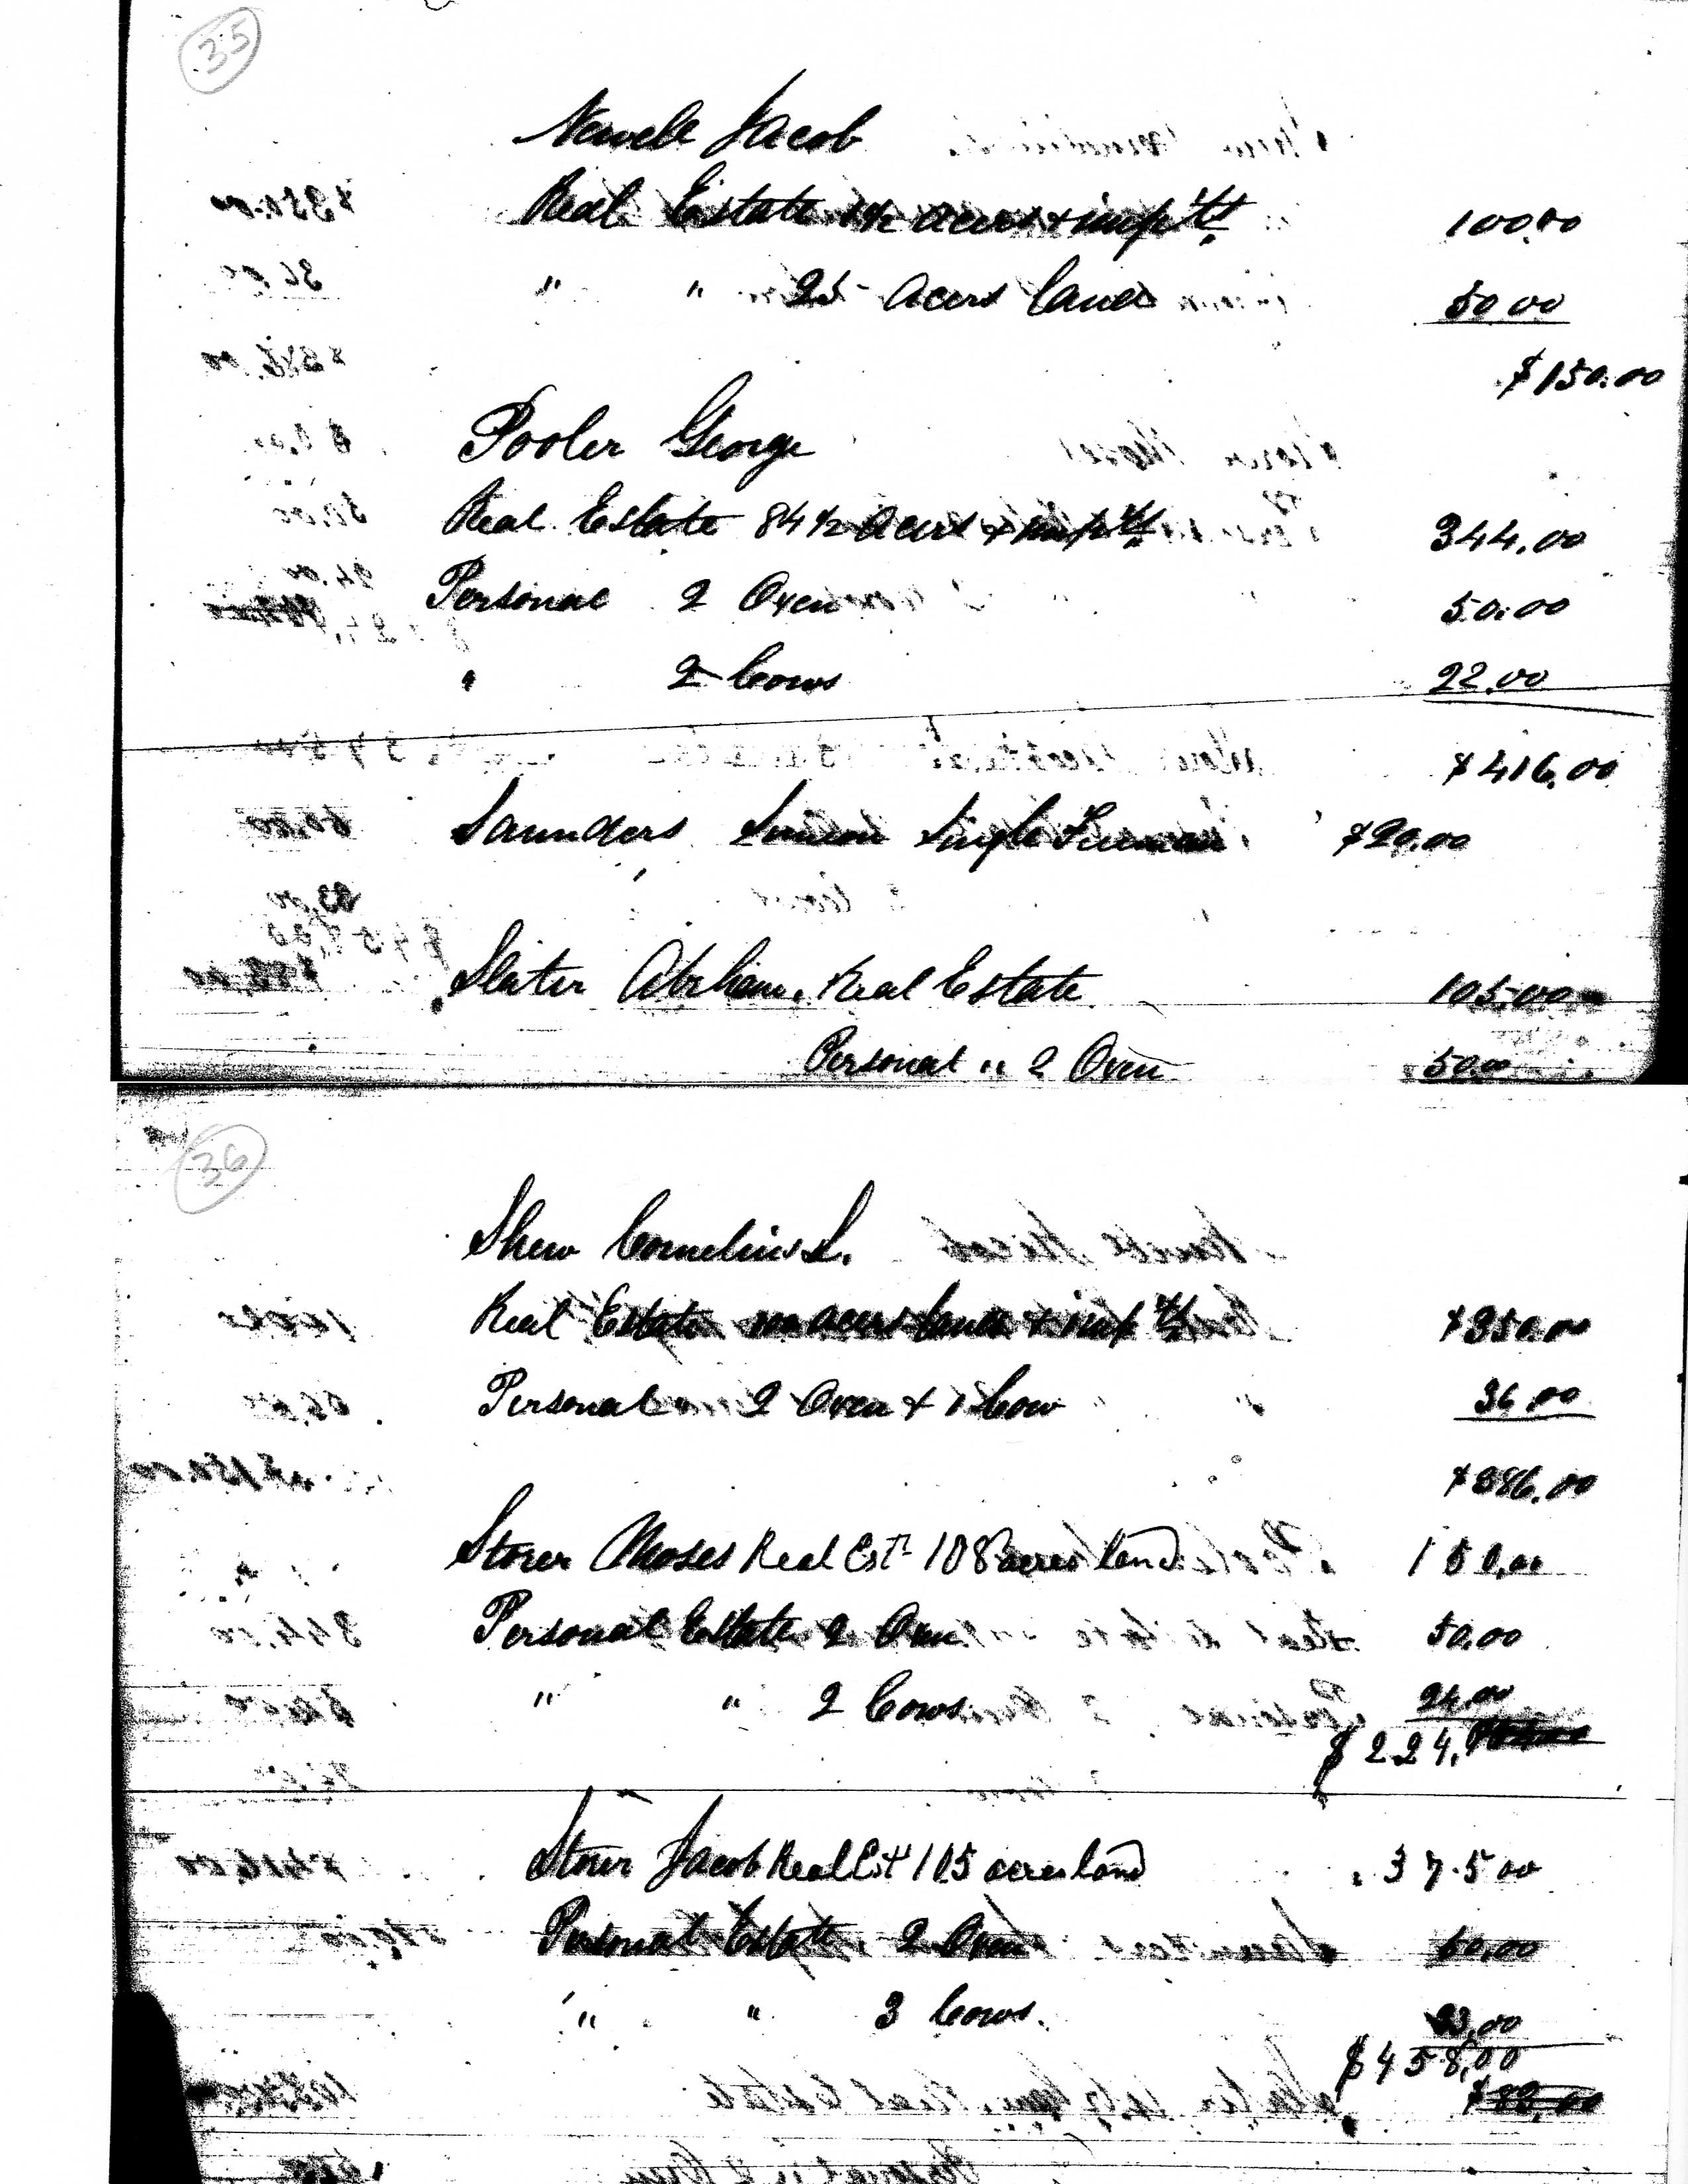 35
Newell Jacob
Real Estate acers & imp'ts 100.00
" " 25 acers land 50 00
$150.00
Pooler George
Real Estate 84½ acers & imp'ts 344.00
Personal 2 Oxen 50.00
" 2 Cows 22.00
$416.00
Saunders Simeon Single Freeman $20.00
Slater Abrham. Real Estate 105.00
Personal " 2 Oxen 50.00
36
Shew Cornelius S.
Real Estate 100 acers land & imp'ts $350.00
Personal 2 Oxen & 1 Cow 36.00
$386.00
Storer Moses Real Est 108 acres land 150.00
Personal Estate 2 Oxen 50.00
" " 2 Cows 24.00
$224.
Storer Jacob Real Est 105 acres land 375 00
Personal Estate 2 Oxen
" " 3 Cows.
$458,00